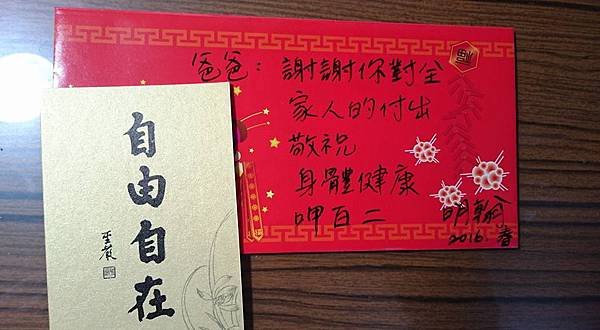 爸爸：謝謝你對全
家人的付出
敬祝
身體健康
呷百二
明翰
2016. 春
自由自在
聖嚴